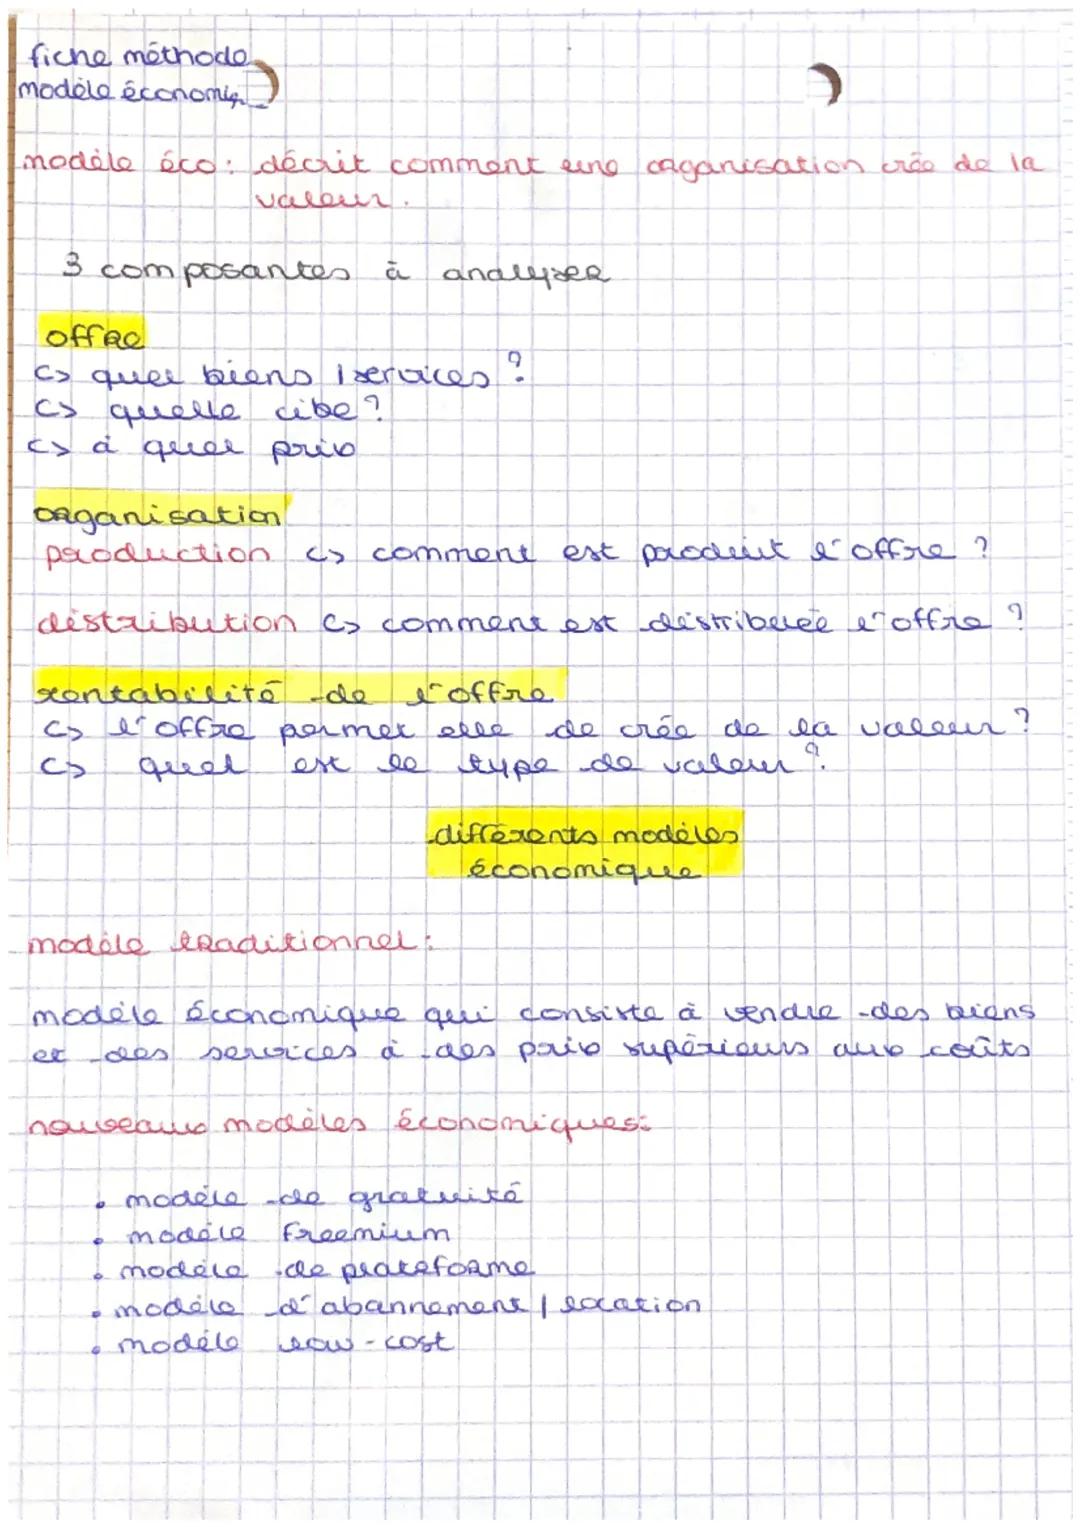 fiche méthode
modèle économiq.
modèle éco: décrit comment une organisation crée de la
valeur.
3 composantes à analyser
offre
↳ quel biens / services ?
↳ quelle cible ?
↳ à quel prix
organisation
production ↳ comment est produit l'offre ?
distribution ↳ comment est distribuée l'offre ?
rentabilité de l'offre
↳ l'offre permet elle de crée de la valeur ?
↳ quel est le type de valeur ?
différents modèles
économique
modèle traditionnel:
modèle économique qui consiste à vendre des biens
et des services à des prix supérieurs aux coûts
nouveaux modèles économiques:
• modèle de gratuité
• modèle freemium
• modèle de plateforme
• modèle d'abonnement / location
• modèle low-cost